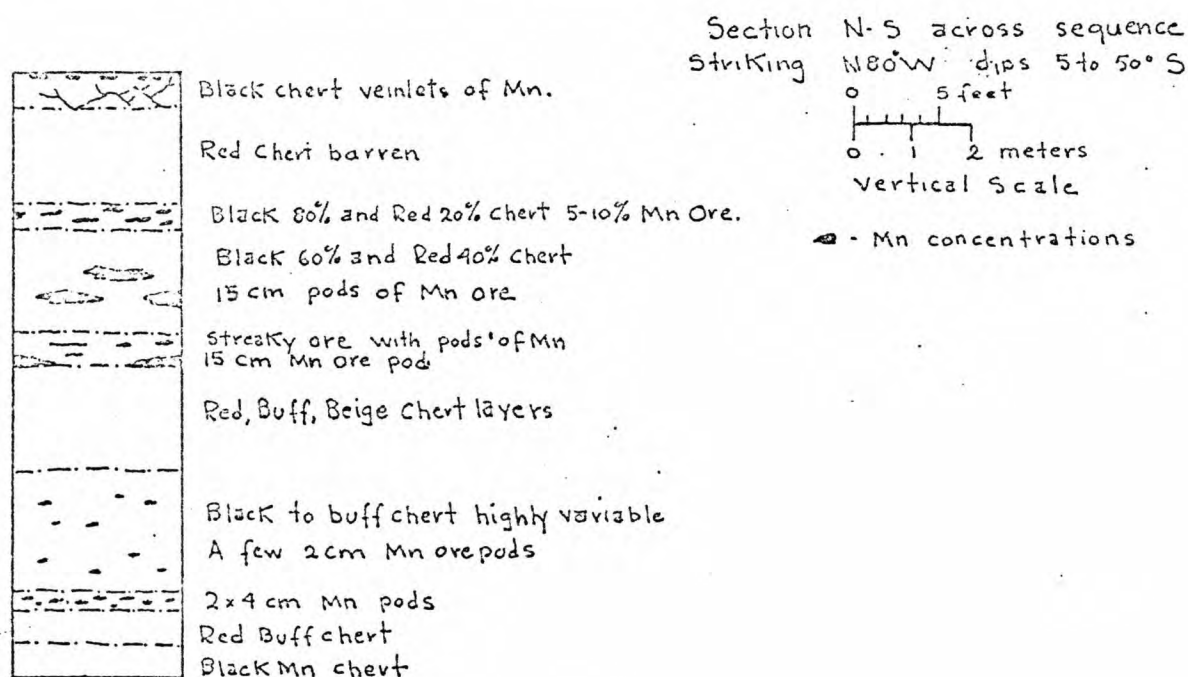 Section N-S across sequence
Striking N80°W dips 5 to 50° S
0 5 feet
0 1 2 meters
Vertical Scale
- Mn concentrations
Black chert veinlets of Mn.
Red Chert barren
Black 80% and Red 20% Chert 5-10% Mn Ore.
Black 60% and Red 40% Chert
15 cm pods of Mn ore
Streaky ore with pods of Mn
15 cm Mn ore pod
Red, Buff, Beige Chert layers
Black to buff chert highly variable
A few 2cm Mn ore pods
2x4 cm Mn pods
Red Buff chert
Black Mn chert